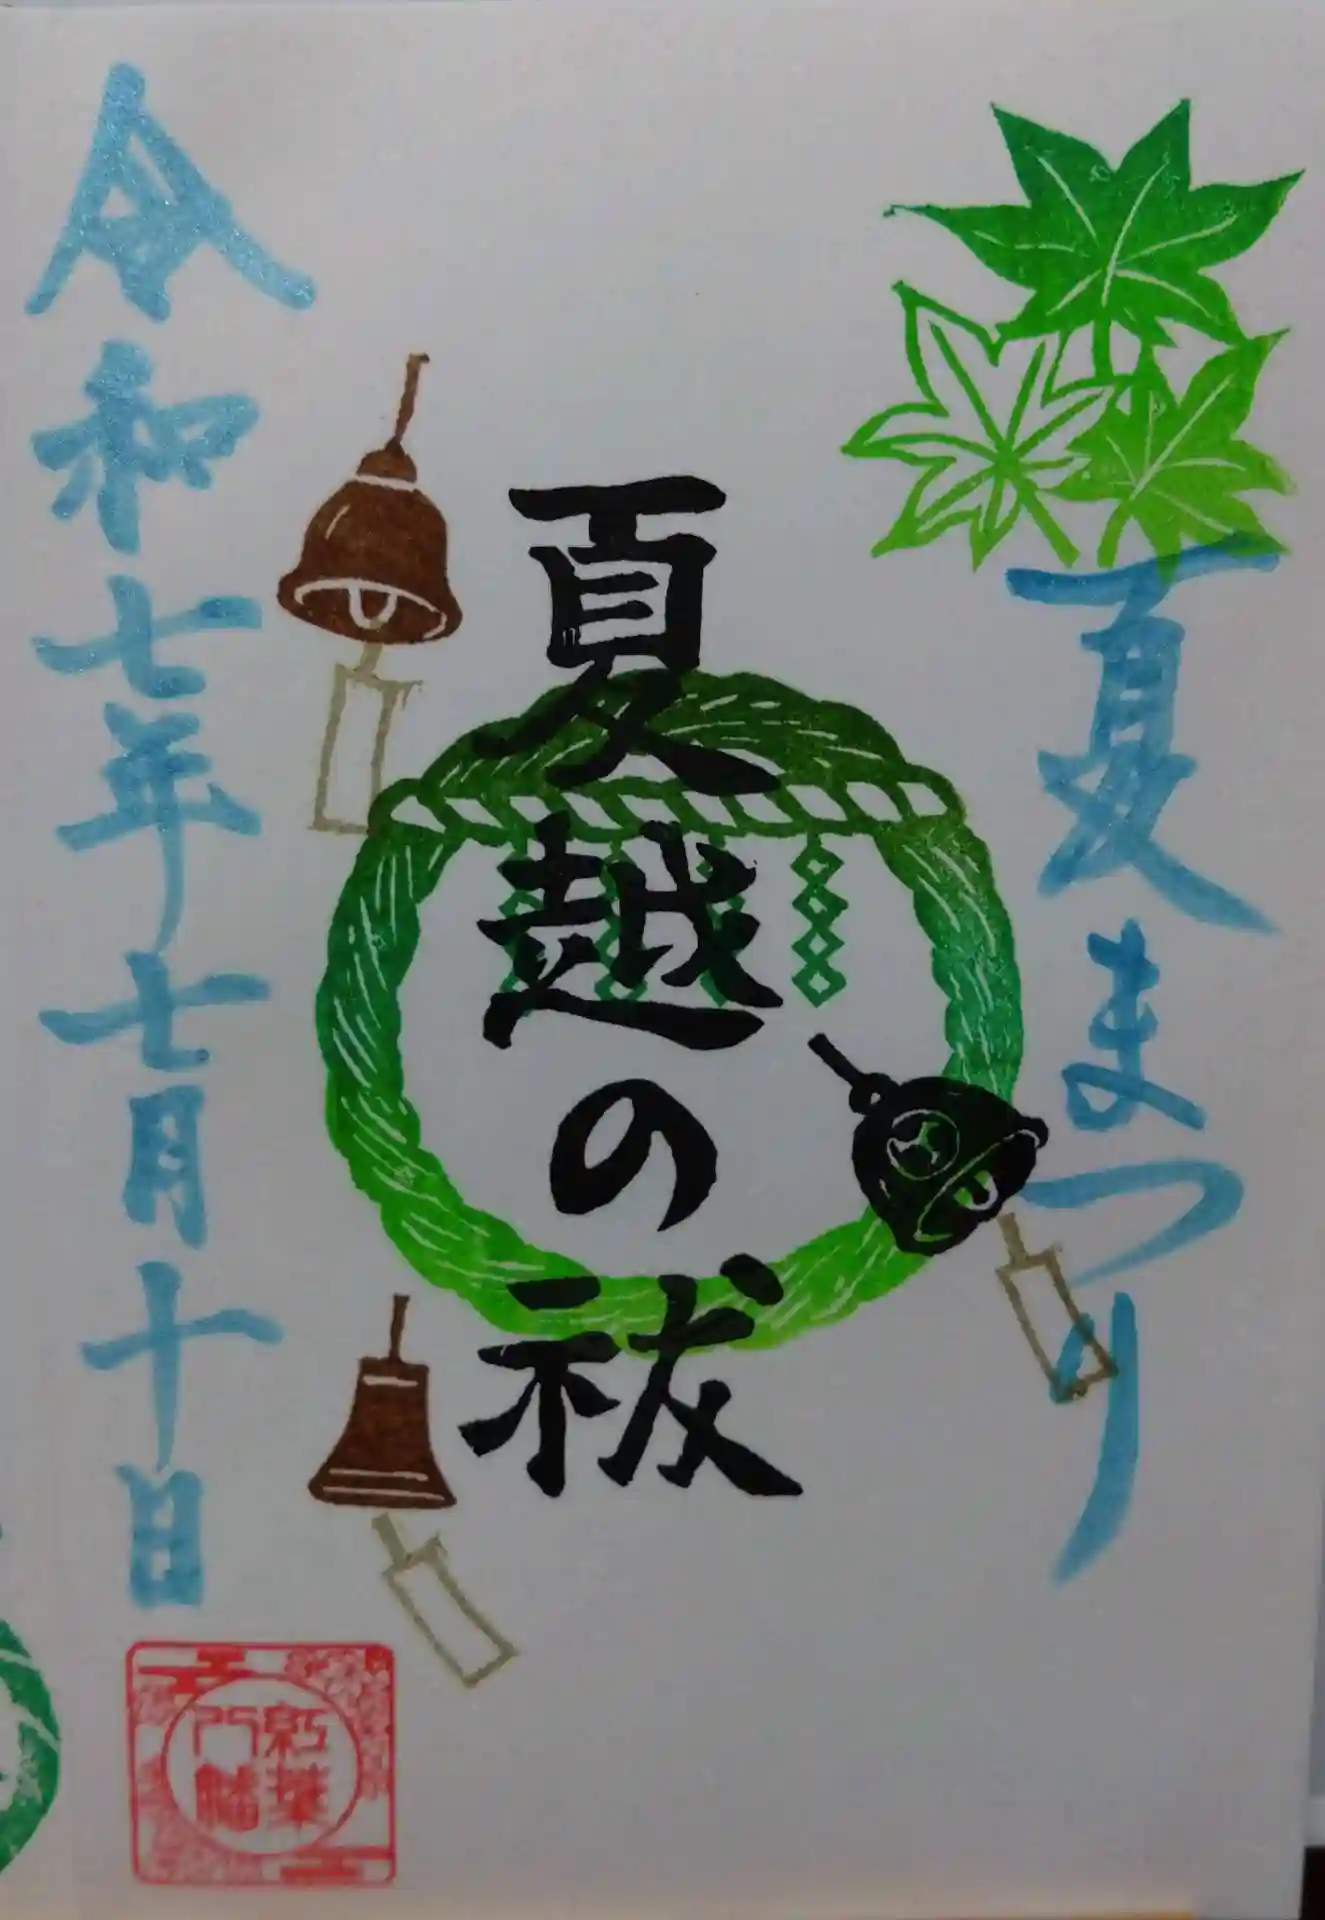 夏まつり
夏越の祓
令和七年七月十日
紅葉
八幡